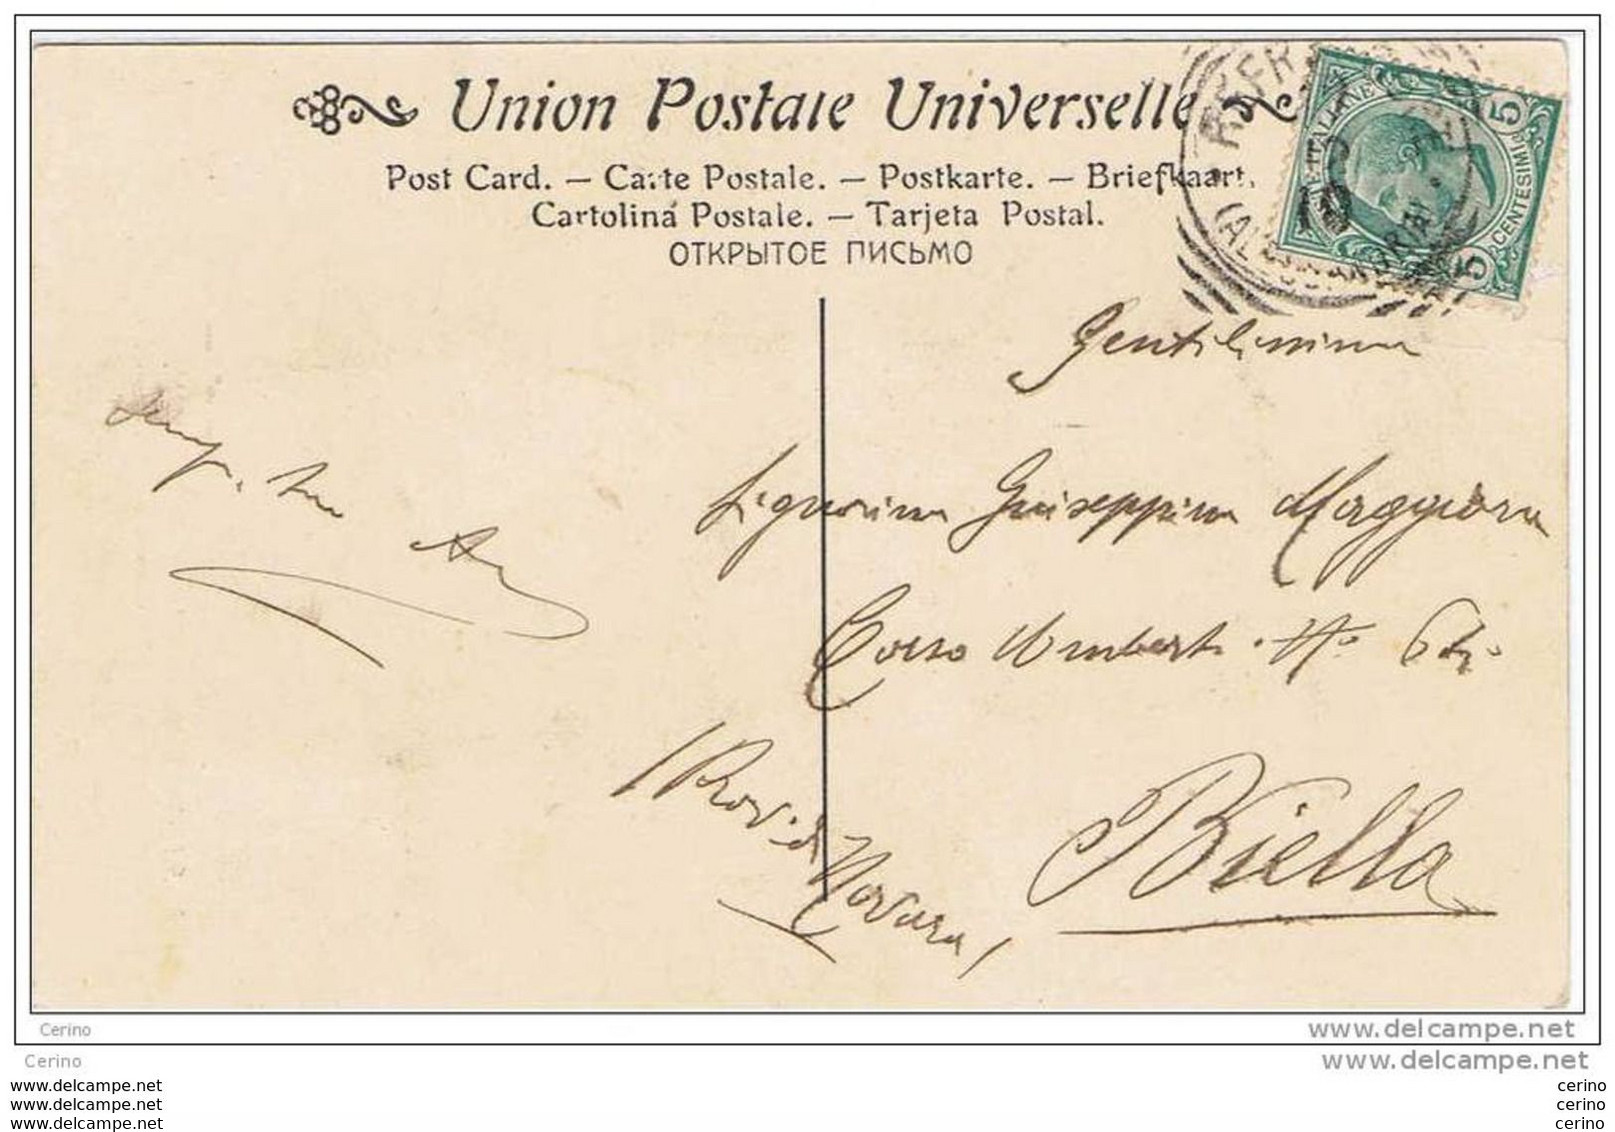 Union Postale Universelle
Post Card. – Carte Postale. – Postkarte. – Briefkaart.
Cartolina Postale. – Tarjeta Postal.
ОТКРЫТОЕ ПИСЬМО
5 5
CENTESIMI
(ALESSANDRIA)
Gentilissima
Signorina Giuseppina Maggiora
Corso Umberto N°
(Prov. di Novara)
Biella
Cerino
www.delcampe.net
Cerino
www.delcampe.net
www.delcampe.net
cerino
www.delcampe.net
cerino
www.delcampe.net
cerino